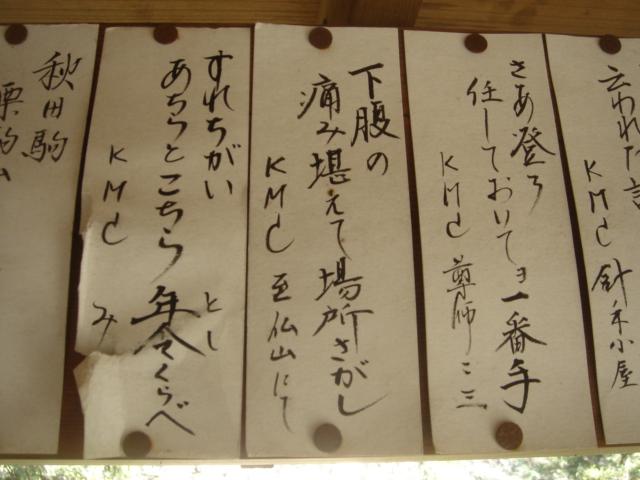 云われた言
KMC 針ノ木小屋
さあ登ろ
任しておいてョ一番手
KMC 尊師ニ三
下腹の
痛み堪えて場所さがし
KMC 至仏山にて
すれちがい
あちらとこちら年令くらべ
とし
KMC み
秋田駒
栗駒山